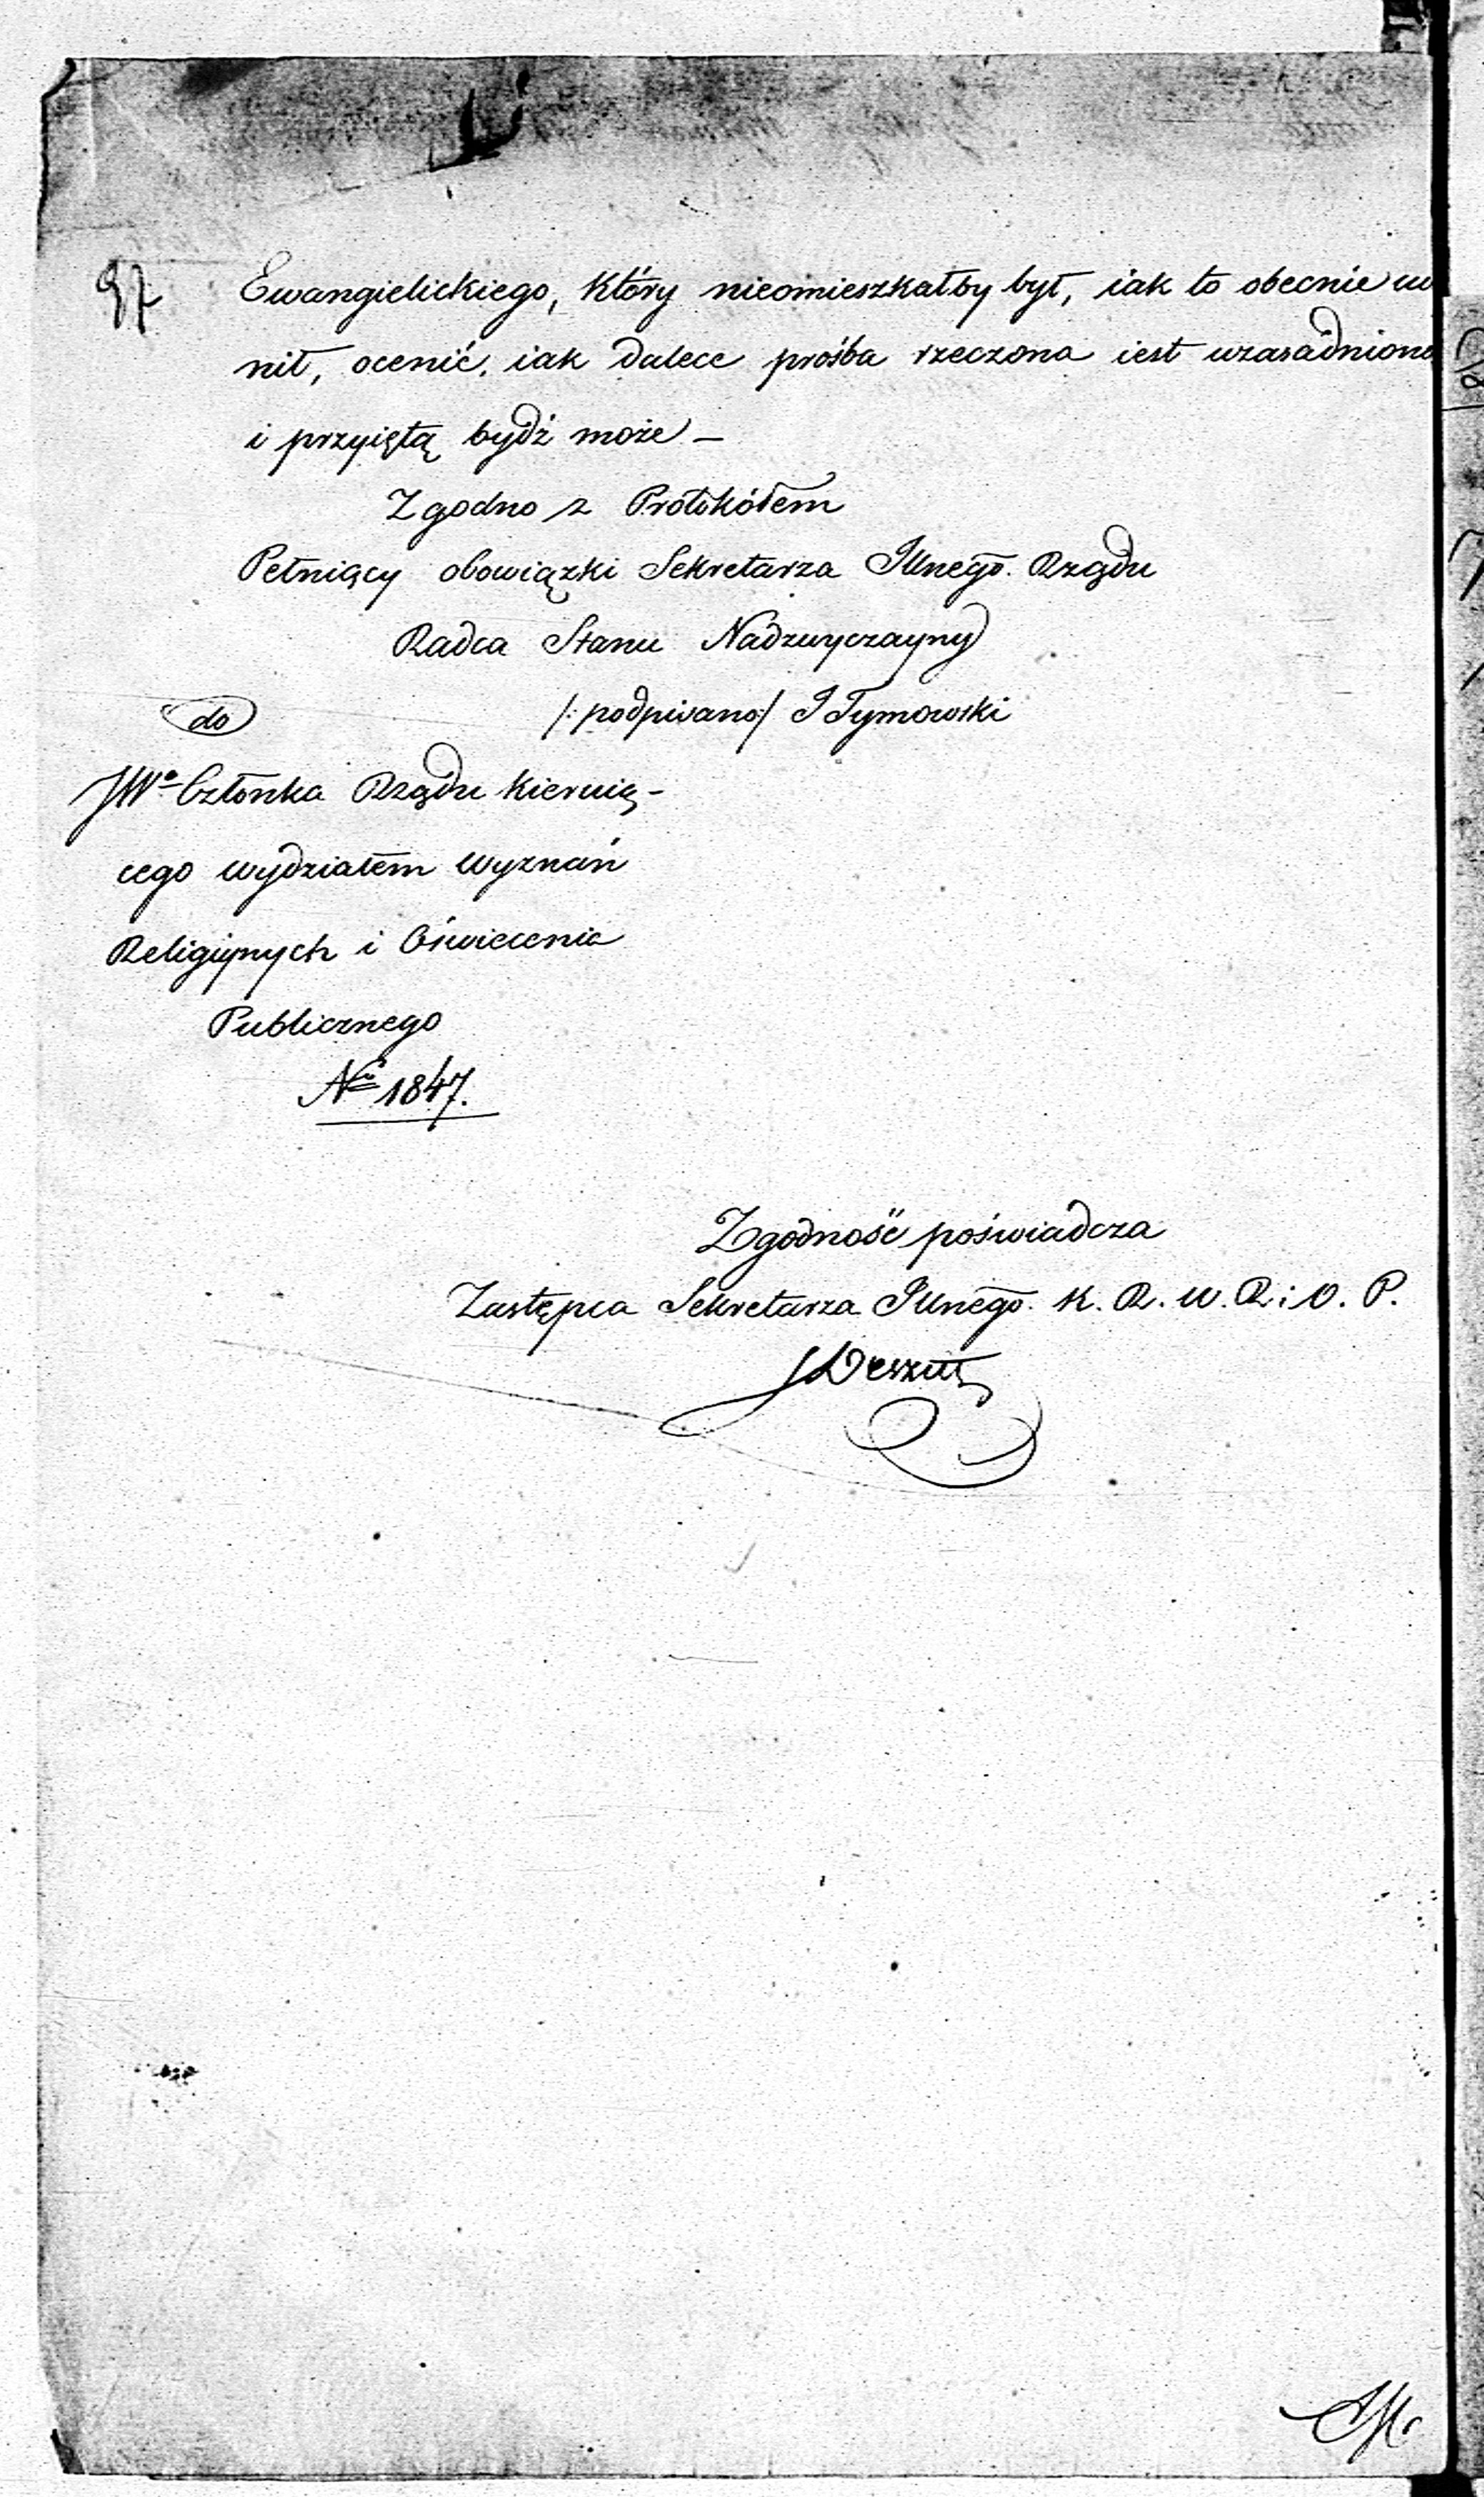 97
Ewangielickiego, który nieomieszkałby był, iak to obecnie uu
nił, ocenić, iak dalece prośba rzeczona iest uzasadniona
i przyiętą bydź może –
Zgodno z Protokółem
Pełniący obowiązki Sekretarza Jllnego. Rządu
Radca Stanu Nadzwyczayny
/: podpisano:/ J Tymowski
do
JWo Członka Rządu kieruią-
cego wydziałem Wyznań
Religiynych i Oświecenia
Publicznego
No 1847.
Zgodność poświadcza
Zastępca Sekretarza Jllnego. K. R. W. R. i O. P.